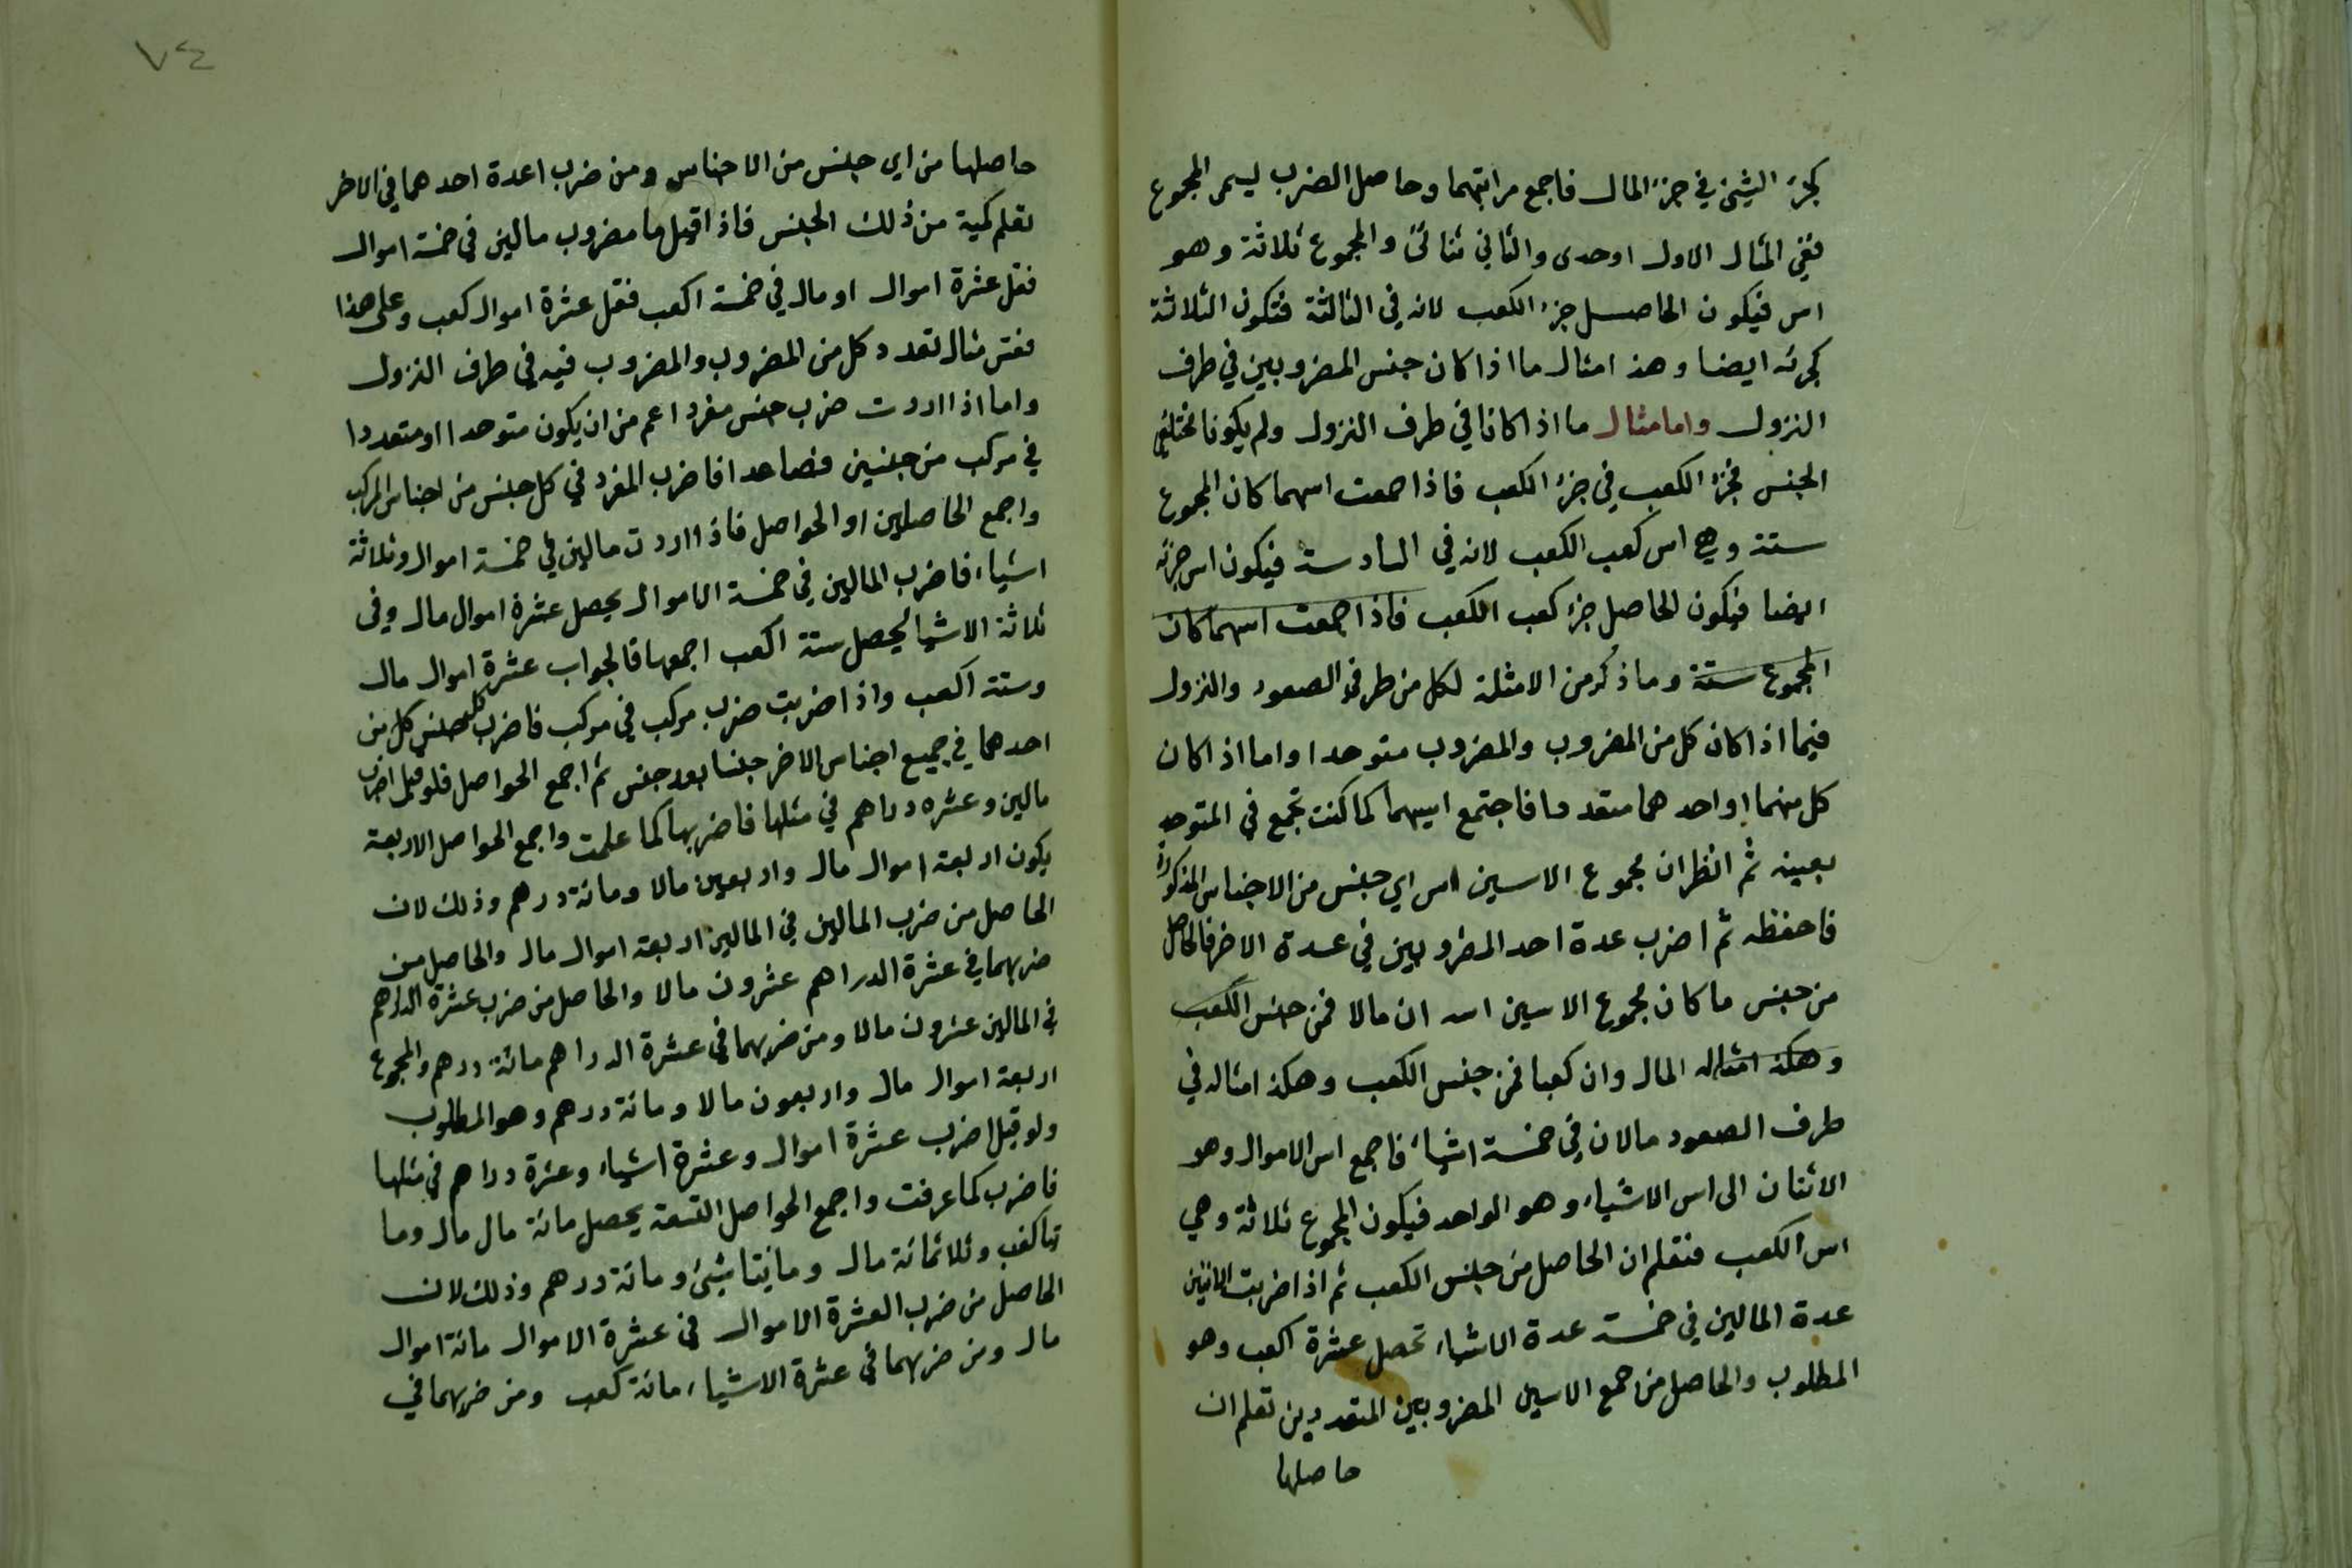 كجزء الشيئ في جزء المال فاجمع مراتبهما وحاصل الضرب ليسمى المجموع
ففي المثال الاول اوحدى والثاني ثنائى والمجموع ثلاثة وهو
اس فيكون الحاصل جزء الكعب لانه في الثالثة فتكون الثلاثة
كجزئه ايضا وهذا مثال ما اذا كان جنس المضروبين في طرف
النزول واما مثال ما اذا كانا في طرف النزول ولم يكونا مختلفى
الجنس فجزء الكعب في جزء الكعب فاذا جمعت اسهما كان المجموع
ستة وهى اس كعب الكعب لانه في السادسة فيكون اس جزئه
ايضا فيكون الحاصل جزء كعب الكعب فاذا جمعت اسهما كان
المجموع ستة وما ذكر من الامثلة لكل من طرفي الصعود والنزول
فيما اذا كان كل من المضروب والمضروب متوحدا واما اذا كان
كل منهما اواحد هما متعددا فاجتمع اسيهما كما كنت تجمع في المتوحد
بعينه ثم انظر ان مجموع الاسين اس اي جنس من الاجناس المذكورة
فاحفظه ثم اضرب عدة احد المضروبين في عدة الاخر فالحاصل
من جنس ما كان مجموع الاسين اسه ان مالا فمن جنس الكعب
وهكذا مثاله المال وان كعبا فمن جنس الكعب وهكذا مثاله في
طرف الصعود مالان في خمسة اشياء فاجمع اس الاموال وهو
الاثنان الى اس الاشياء وهو الواحد فيكون المجموع ثلاثة وهي
اس الكعب فتعلم ان الحاصل من جنس الكعب ثم اذا ضربت الاثنين
عدة المالين في خمسة عدة الاشياء تحصل عشرة اكعب وهو
المطلوب والحاصل من جمع الاسين المضروبين المتعددين تعلم ان
حاصلها
٧٤
حاصلها من اي جنس من الاجناس ومن ضرب اعدة احدهما في الاخر
تعلم كمية من ذلك الجنس فاذا قيل ما مضروب مالين في خمسة اموال
فقل عشرة اموال او مال في خمسة اكعب فقل عشرة اموال كعب وعلى هذا
فقس مثال تعدد كل من المضروب والمضروب فيه في طرف النزول
واما اذا اردت ضرب جنس مفرد اعم من ان يكون متوحدا او متعددا
في مركب من جنسين فصاعدا فاضرب المفرد في كل جنس من اجناس المركب
واجمع الحاصلين او الحواصل فاذا اردت مالين في خمسة اموال وثلاثة
اشياء فاضرب المالين في خمسة الاموال يحصل عشرة اموال مال وفى
ثلاثة الاشيا يحصل ستة اكعب اجمعها فالجواب عشرة اموال مال
وستة اكعب واذا ضربت ضرب مركب في مركب فاضرب كل جنس كل من
احدهما في جميع اجناس الاخر جنسا بعد جنس ثم اجمع الحواصل فلو قيل اضرب
مالين وعشره دراهم في مثلها فاضربها كما علمت واجمع الحواصل الاربعة
يكون اربعة اموال مال واربعين مالا ومائة درهم وذلك لان
الحاصل من ضرب المالين في المالين اربعة اموال مال والحاصل من
ضربهما في عشرة الدراهم عشرون مالا والحاصل من ضرب عشرة الدراهم
في المالين عشرون مالا ومن ضربهما في عشرة الدراهم مائة درهم والمجموع
اربعة اموال مال واربعون مالا ومائة درهم وهو المطلوب
ولو قيل اضرب عشرة اموال وعشرة اشياء وعشرة دراهم في مثلها
فاضرب كما عرفت واجمع الحواصل التسعة يحصل مائة مال مال وما
تا كعب وثلاثمائة مال ومائيتا شيئ ومائة درهم وذلك لان
الحاصل من ضرب العشرة الاموال في عشرة الاموال مائة اموال
مال ومن ضربهما في عشرة الاشياء مائة كعب ومن ضربهما في